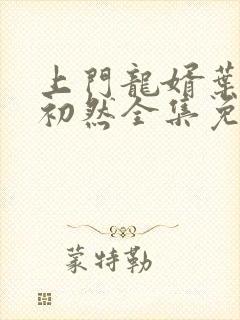 上門龍婿葉
初然全集免
蒙特勒